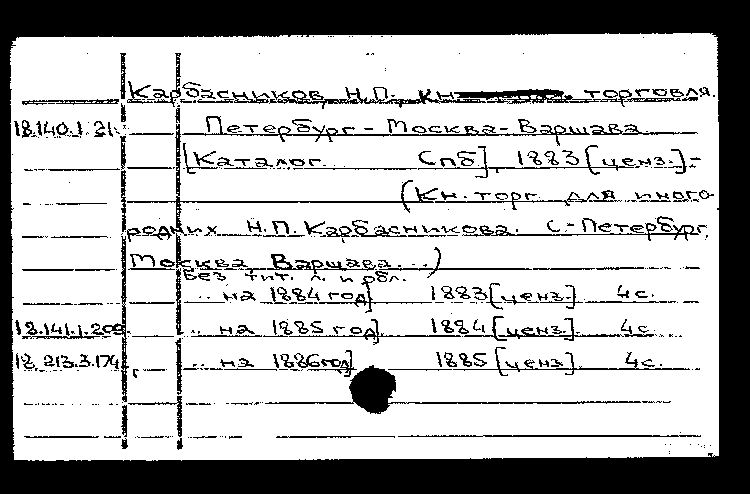 Карбасников, Н.П., кн. торговля.
18.140.1.21. Петербург - Москва - Варшава
[Каталог... Спб], 1883 [ценз.] -
(Кн. торг. для иного-
родних Н.П. Карбасникова. С-Петербург,
Москва Варшава...)
Без тит. л. и обл.
.. на 1884 год] 1883 [ценз.] 4с.
18.141.1.208. .. на 1885 год]. 1884 [ценз.]. 4с.
18.213.3.174. .. на 1886 год] 1885 [ценз]. 4с.